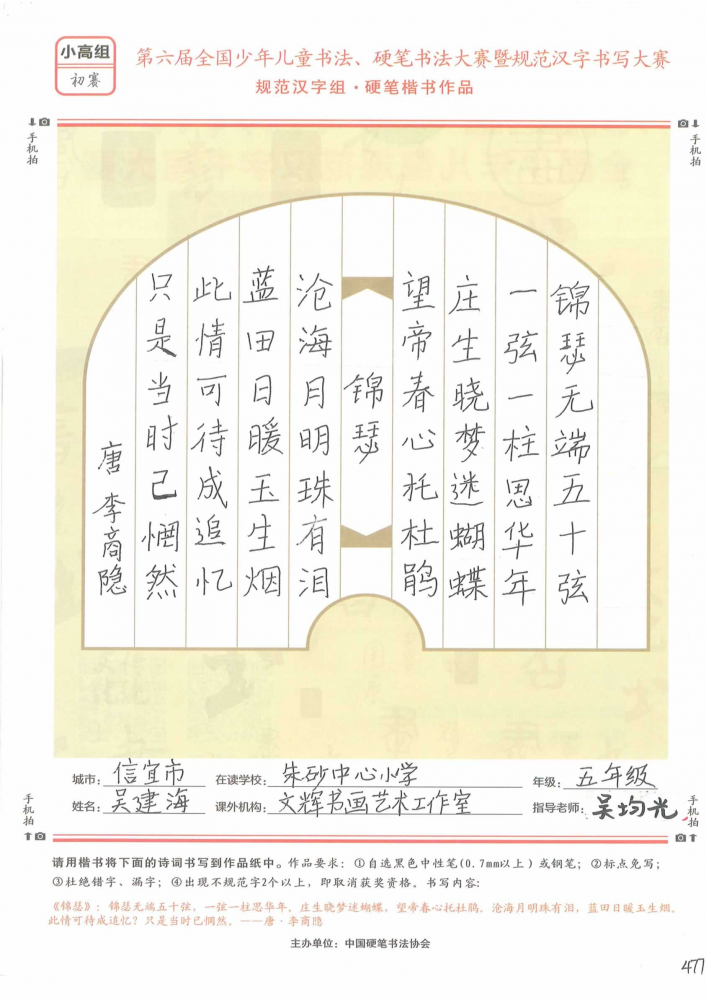 小高组
初赛
第六届全国少年儿童书法、硬笔书法大赛暨规范汉字书写大赛
规范汉字组·硬笔楷书作品
手机拍
手机拍
锦瑟无端五十弦
一弦一柱思华年
庄生晓梦迷蝴蝶
望帝春心托杜鹃
锦瑟
沧海月明珠有泪
蓝田日暖玉生烟
此情可待成追忆
只是当时已惘然
唐 李商隐
手机拍
手机拍
城市：信宜市 在读学校：朱砂中心小学 年级：五年级
姓名：吴建海 课外机构：文辉书画艺术工作室 指导老师：吴均光
请用楷书将下面的诗词书写到作品纸中。作品要求：①自选黑色中性笔(0.7mm以上)或钢笔；②标点免写；
③杜绝错字、漏字；④出现不规范字2个以上，即取消获奖资格。书写内容：
《锦瑟》：锦瑟无端五十弦，一弦一柱思华年。庄生晓梦迷蝴蝶，望帝春心托杜鹃。沧海月明珠有泪，蓝田日暖玉生烟。
此情可待成追忆？只是当时已惘然。——唐·李商隐
主办单位：中国硬笔书法协会
477